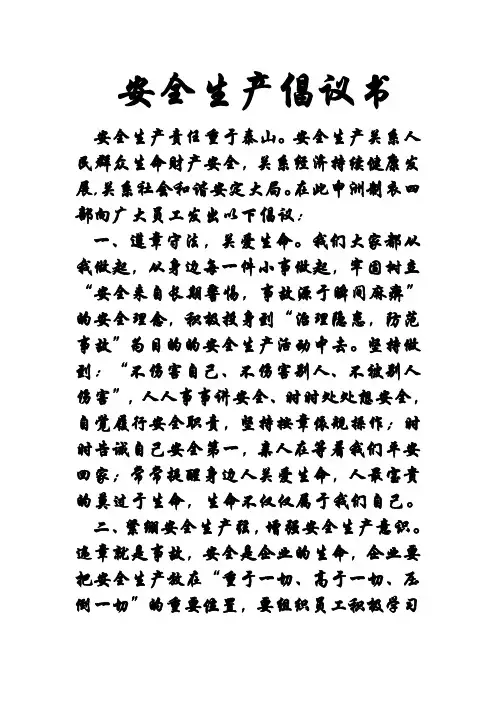 安全生产倡议书
安全生产责任重于泰山。安全生产关系人
民群众生命财产安全，关系经济持续健康发
展，关系社会和谐安定大局。在此申洲制衣四
部向广大员工发出以下倡议：
一、遵章守法，关爱生命。我们大家都从
我做起，从身边每一件小事做起，牢固树立
“安全来自长期警惕，事故源于瞬间麻痹”
的安全理念，积极投身到“治理隐患，防范
事故”为目的的安全生产活动中去。坚持做
到：“不伤害自己、不伤害别人、不被别人
伤害”，人人事事讲安全、时时处处想安全，
自觉履行安全职责，坚持按章依规操作；时
时告诫自己安全第一，亲人在等着我们平安
回家；常常提醒身边人关爱生命，人最宝贵
的莫过于生命，生命不仅仅属于我们自己。
二、紧绷安全生产弦，增强安全生产意识。
违章就是事故，安全是企业的生命，企业要
把安全生产放在“重于一切、高于一切、压
倒一切”的重要位置，要组织员工积极学习